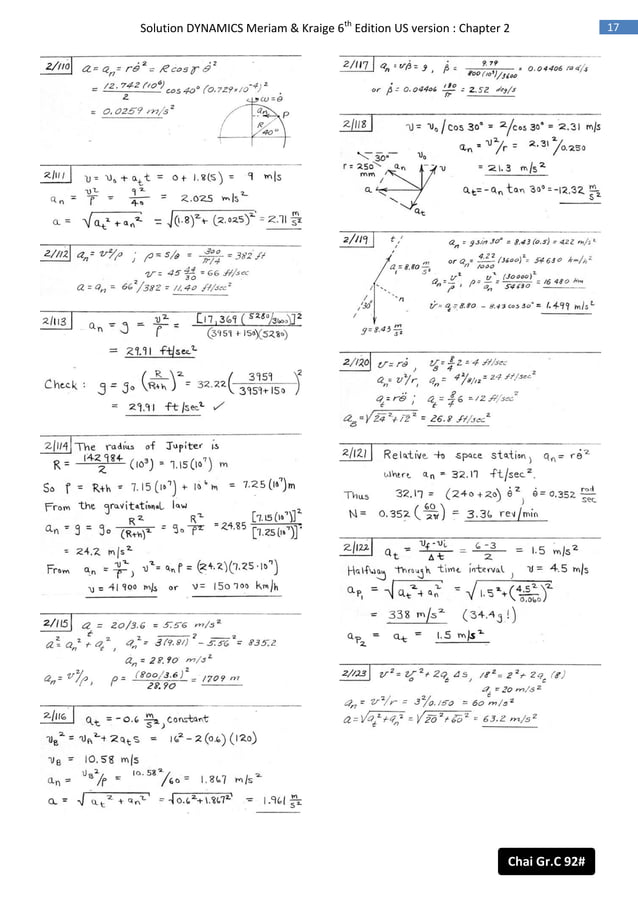 Solution DYNAMICS Meriam & Kraige 6th Edition US version : Chapter 2
17
2/110 a = a_n = rθ̇² = R cos γ θ̇²
= 12.742(10⁶)/2 cos 40° (0.729×10⁻⁴)²
= 0.0259 m/s²
ω = θ̇
a_n P
R
40°
2/111 v = v₀ + a_t t = 0 + 1.8(5) = 9 m/s
a_n = v²/ρ = 9²/40 = 2.025 m/s²
a = √(a_t² + a_n²) = √((1.8)² + (2.025)²) = 2.71 m/s²
2/112 a_n = v²/ρ ; ρ = s/θ = 300/(π/4) = 382 ft
v = 45 44/30 = 66 ft/sec
a = a_n = 66²/382 = 11.40 ft/sec²
2/113 a_n = g = v²/ρ = [17,369 (5280/3600)]²/(3959 + 150)(5280)
= 29.91 ft/sec²
Check : g = g₀ (R/(R+h))² = 32.22 (3959/(3959+150))²
= 29.91 ft/sec² ✓
2/114 The radius of Jupiter is
R = 142 984/2 (10³) = 7.15(10⁷) m
So ρ = R+h = 7.15(10⁷) + 10⁶ m = 7.25(10⁷)m
From the gravitational law
a_n = g = g₀ R²/(R+h)² = g₀ R²/ρ² = 24.85 [7.15(10⁷)]²/[7.25(10⁷)]²
= 24.2 m/s²
From a_n = v²/ρ, v² = a_n ρ = (24.2)(7.25·10⁷)
v = 41 900 m/s or v = 150 700 km/h
2/115 a_t = 20/3.6 = 5.56 m/s²
a² = a_n² + a_t², a_n² = 3(9.81)² − 5.56² = 835.2
a_n = 28.90 m/s²
a_n = v²/ρ, ρ = (800/3.6)²/28.90 = 1709 m
2/116 a_t = −0.6 m/s², constant
v_B² = v_A² + 2a_t s = 16² − 2(0.6)(120)
v_B = 10.58 m/s
a_n = v_B²/ρ = 10.58²/60 = 1.867 m/s²
a = √(a_t² + a_n²) = √(0.6² + 1.867²) = 1.961 m/s²
2/117 a_n = vβ̇ = g , β̇ = 9.79/(800(10³)/3600) = 0.04406 rad/s
or β̇ = 0.04406 180/π = 2.52 deg/s
2/118 v = v₀/cos 30° = 2/cos 30° = 2.31 m/s
a_n = v²/r = 2.31²/0.250
= 21.3 m/s²
a_t = −a_n tan 30° = −12.32 m/s²
30° v₀
r = 250 mm
a_n v
a
a_t
2/119 a_n = g sin 30° = 8.43 (0.5) = 4.22 m/s²
or a_n = 4.22/1000 (3600)² = 54 630 km/h²
a_n = v²/ρ , ρ = v²/a_n = (30 000)²/54 630 = 16 480 km
v̇ = a_t = 8.80 − 8.43 cos 30° = 1.499 m/s²
t
a = 8.80 m/s²
30°
n
g = 8.43 m/s²
2/120 v = rθ̇ , v_B = 8/4 2 = 4 ft/sec
a_n = v²/r, a_n = 4²/8/12 = 24 ft/sec²
a_t = rθ̈ ; a_t = 8/4 6 = 12 ft/sec²
a_B = √(24² + 12²) = 26.8 ft/sec²
2/121 Relative to space station, a_n = rθ̇²
where a_n = 32.17 ft/sec².
Thus 32.17 = (240 + 20) θ̇² , θ̇ = 0.352 rad/sec
N = 0.352 (60/2π) = 3.36 rev/min
2/122 a_t = (v_f − v_i)/Δt = (6 − 3)/2 = 1.5 m/s²
Halfway through time interval , v = 4.5 m/s
a_P₁ = √(a_t² + a_n²) = √(1.5² + (4.5²/0.060)²)
= 338 m/s² (34.4g!)
a_P₂ = a_t = 1.5 m/s²
2/123 v² = v₀² + 2a_t Δs, 18² = 2² + 2a_t (8)
a_t = 20 m/s²
a_n = v²/r = 3²/0.150 = 60 m/s²
a = √(a_t² + a_n²) = √(20² + 60²) = 63.2 m/s²
Chai Gr.C 92#